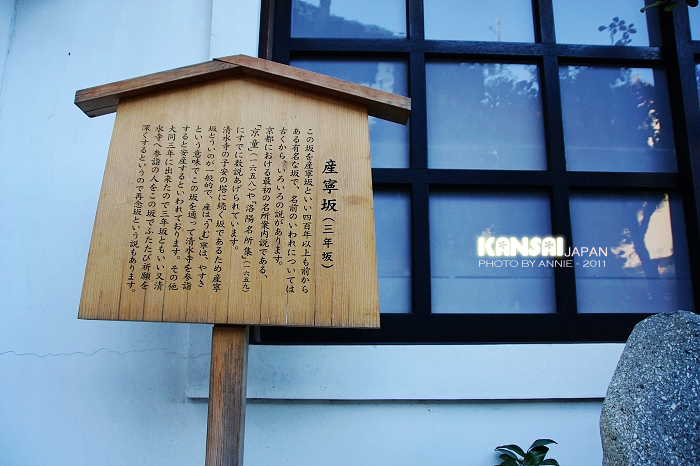 産寧坂（三年坂）
この坂を産寧坂といい四百年以上も前から
ある有名な坂で、名前のいわれについては
古くからいろいろの説があります。
京都における最初の名所案内説である、
「京童」（一六五八）や『洛陽名所集』（一六五九）
にすでに数説あげられています。
清水寺の子安の塔に続く坂であるため産寧
坂というのが一般的で、産は「うむ」寧は、やすき
という意味でこの坂を通って清水寺を参詣
すると安産するといわれております。その他
大同三年に出来たので三年坂ともいい又清
水寺へ参詣の人をこの坂でふたたび祈願を
深くするというので再念坂という説もあります。
KANSAI JAPAN
PHOTO BY ANNIE - 2011